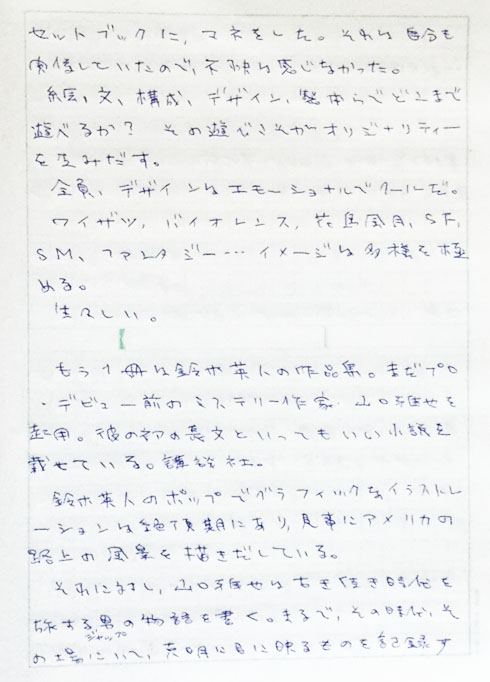 セットブックに，マネをした。それは自分も
関係していたので，不快は感じなかった。
絵、文、構成、デザイン、製本らでどこまで
遊べるか？　その遊びこそがオリジナリティー
を生みだす。
全員、デザインはエモーショナルでクールだ。
ワイザツ，バイオレンス，花鳥風月，SF，
SM，ファンタジー…イメージは多様を極
める。
生々しい。
もう1冊は鈴木英人の作品集。まだプロ
・デビュー前のミステリー作家・山口雅也を
起用。彼の初の長文といってもいい小説を
載せている。講談社。
鈴木英人のポップでグラフィックなイラストレ
ーションは絶頂期にあり，見事にアメリカの
路上の風景を描きだしている。
それに対し，山口雅也は古き佳き時代を
旅する男の物語を書く。まるで，その時代，そ
ジャップ
の場にいて，克明に目に映るものを記録す